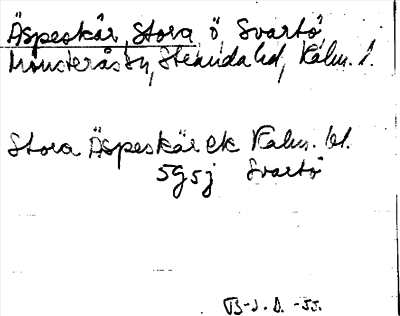 Äspeskär, Stora ö Svartö
Mönsterås sn, Stranda hd, Kalm. l.
Stora Äspeskär ek Kalm. bl.
5g5j Svartö
B-J. D. -55.